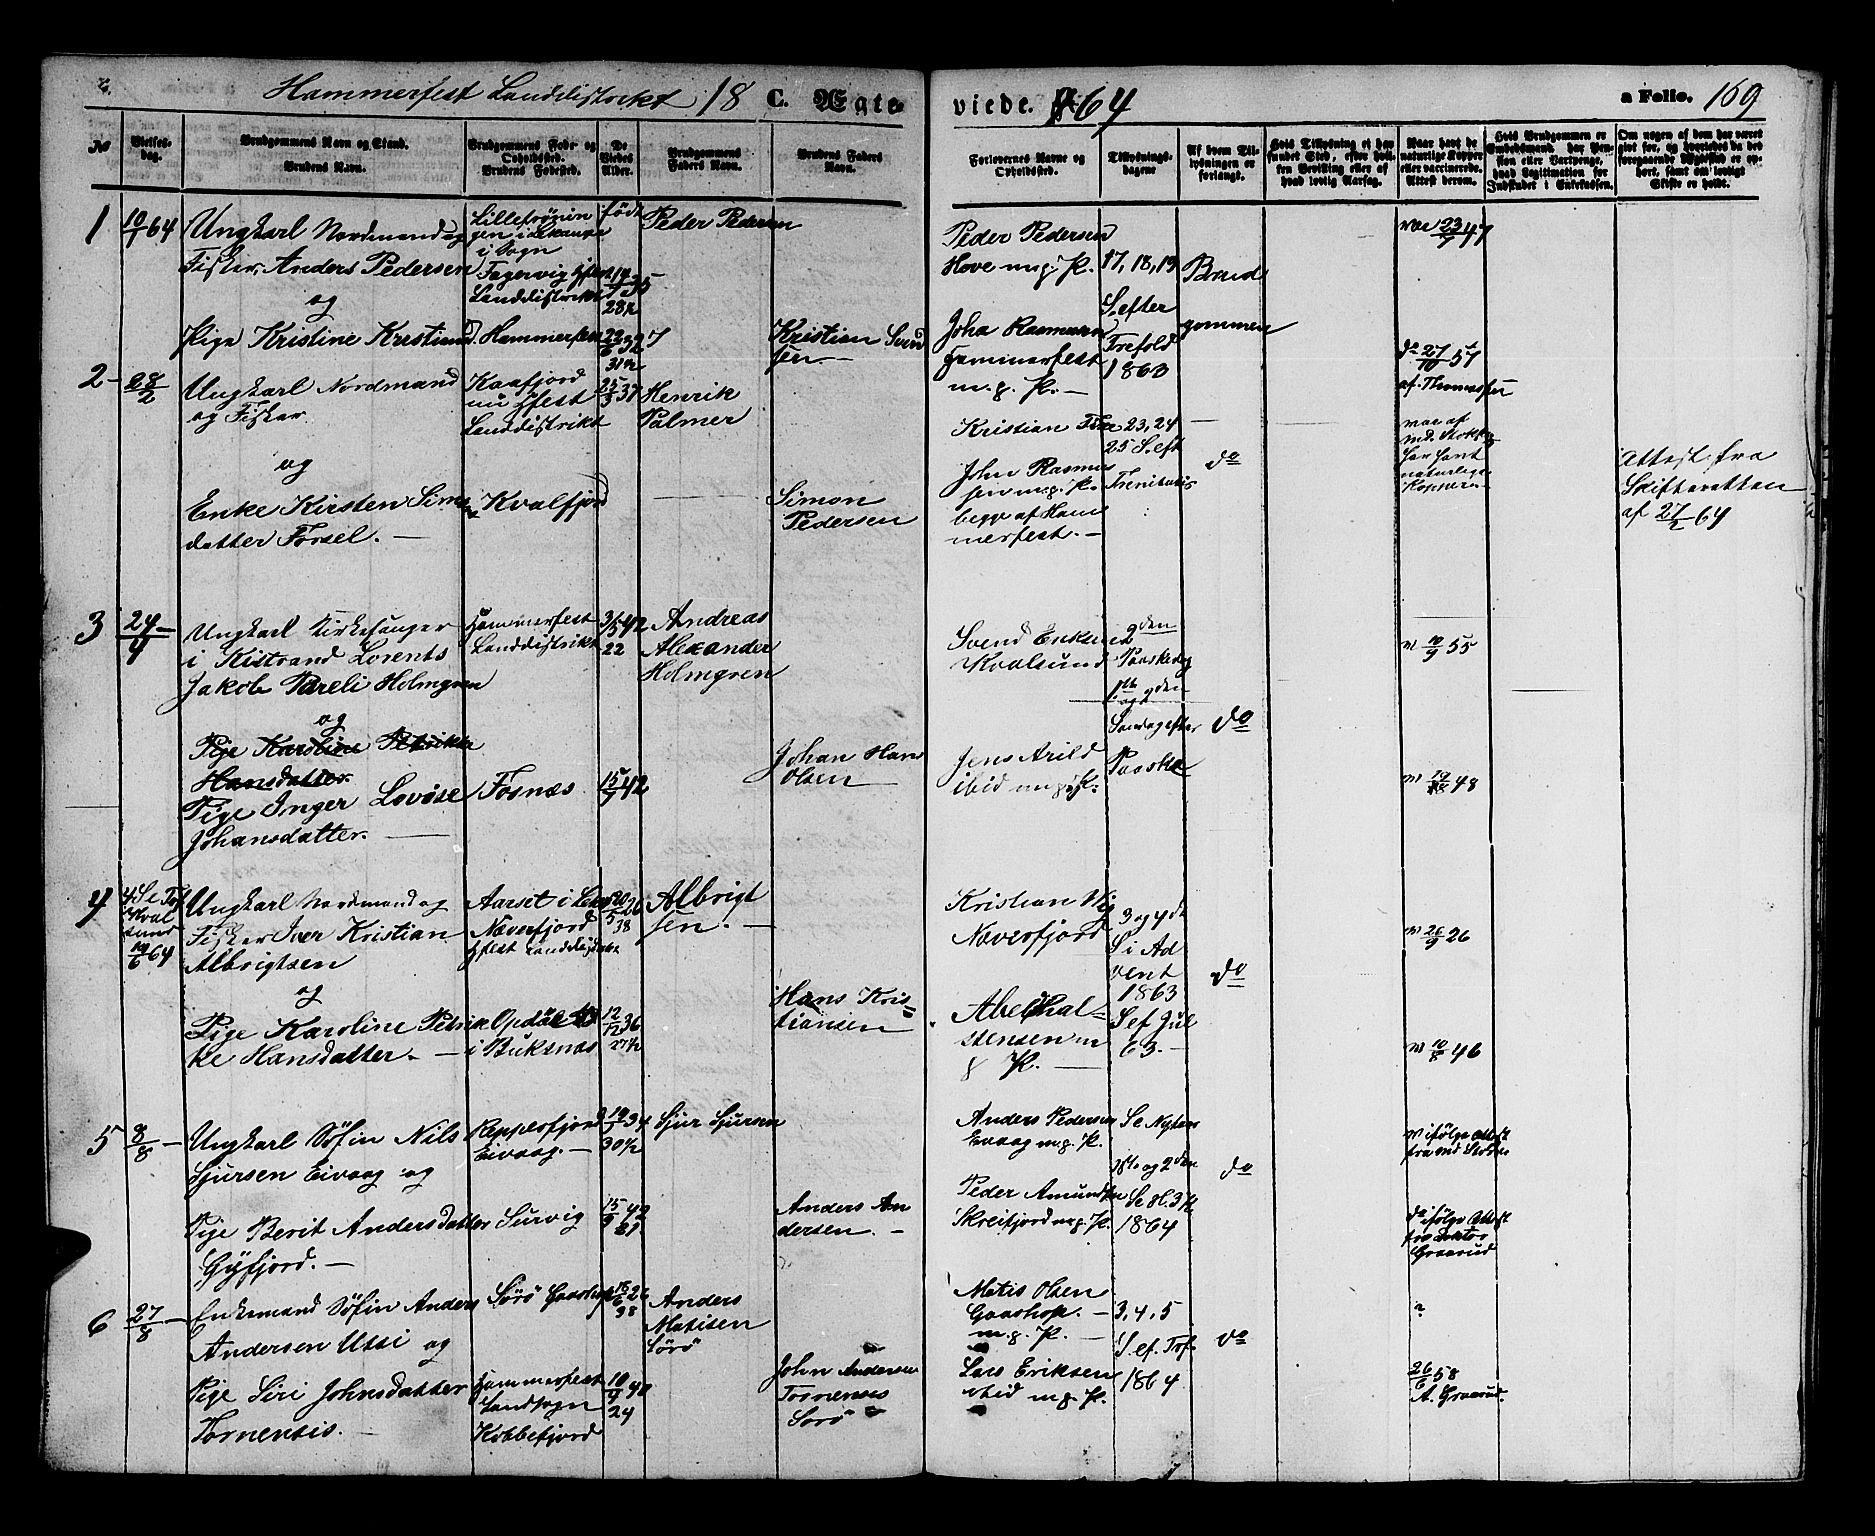 Hammerfest Landdistrikt 18 C. Ægteviede. 1864 a Folio. 169
No
Vielses-dag.
Brudgommens Navn og Stand.
Brudens Navn.
Brudgommens Føde- og Opholdssted.
Brudens Fødested.
De Viedes Alder.
Brudgommens Faders Navn.
Brudens Faders Navn.
Forlovernes Navne og Opholdssted.
Tillysnings-dagene
Af hvem Tillysningen er forlangt.
Hvis Tillysning ei har fundet Sted, efter hvilken Bevilling eller af hvad lovlig Aarsag.
Naar havt de naturlige Kopper eller vaccinerede. Attest derom.
Hvis Brudgommen er Embedsmand, har Pension eller Vartpenge, hvad Legitimation for Indskudet i Enkekassen.
Om nogen af dem har været gift før, og hvorledes da det foregaaende Ægteskab er ophørt, samt om lovligt Skifte er holdt.
1
10/1 64
Ungkarl Nordmand og
Fisker, Anders Pedersen
og
Pige Kristine Kristians D.
i Sogn
Fagervig Hfest
Landdistrikt
Hammerfest
født
14/7 35
28½
22/6 32
31½
Peder Pedersen
Kristian Svend
sen —
Peder Pedersen
Hove m. p. P.
Joha Rasmusen
Hammerfest
m. p. P. —
17, 18, 19
S. efter
Trefold
1863
Brud
gommen
vac 23/7 47
do 27/10 57
af Thomassen
2 —
28/2
Ungkarl Nordmand
og Fisker
og
Enke Kirsten Simons
datter Forsel. —
Kaafjord
nu Hfest
Landdistrikt
Kvalfjord
25/3 37
Henrik
Palmer
Simon
Pedersen
Kristian
John Rasmus
sen m. p. P.
begge af Ham
merfest. —
23, 24
25 S. eft
Trenitatis
do
vac af
md. Stokke
har havt
naturlige
Kopper
Attest fra
Skifteretten
af 27/2 64
3
24/4 —
Ungkarl Kirkesanger
i Kistrand Lorents
Jakob Pareli Holmgren
og
Pige Karoline Petrikke
Hansdatter
Pige Inger Lovise
Johansdatter. —
Hammerfest
Landdistrikt
Fosnæs
31/5 42
22
15/9 42
Andreas
Alexander
Holmgren
Johan Hans
Olsen —
Svend Eriksen
Kvalsund
Jens Arild
ibid m. p. P.
2den
Paaskedag
1ste
og 2den
Søndag efter
Paaske
do
v 10/9 55
v 19/8 48
4
4 S. e. Tref
Kval
sund
19/6 64
Ungkarl Nordmand og
Fisker Iver Kristian
Albrigtsen
og
Pige Karoline Petrik
ke Hansdatter. —
Næverfjord
Hfest Landdistrikt
i Buksnæs
20/5 26
38
12/12 36
27½
Albrigt
sen. —
Hans Kris=
tiansen
Kristian Wig
Næverfjord
Abel Hal=
stensen m
p P. —
3 og 4de
S i Ad
vent
1863
S ef Jul
63. —
do
v 26/9 26
v 10/8 46
5
8/8 —
Ungkarl Søfin Nils
Sjursen Eivaag og
Pige Berit Andersdatter
Gyfjord. —
Repperfjord
Eivaag. —
Survig
19/1 34
30½
15/9 42
21
Sjur Sjursen
Anders An
dersen. —
Anders Pedersen
Eivaag m. p. P.
Peder Amundsen
Skreifjord m. p. P.
S. e. Nytaar
1ste og 2den
S. e. H. 3 K
1864
do
v ifølge Attest
fra md Stokke
do ifølge Attest
fra doktor
Graarud
6
27/8 —
Enkemand Søfin Anders
Andersen Utsi og
Pige Siri Johnsdatter
Tornensis. —
Sørø Gaashop
Hammerfest
Landsogn
Kobbefjord
16/6 26
38
10/9 40
24
Anders
Matisen
Sørø
John Andersen
Tornensis
Sørø
Matis Olsen
Gaashop. —
m. p. P. —
Lars Eriksen
ibid m. p. P.
3, 4, 5
S. ef. Tref.
1864
do
26/6 58
A. Graarud